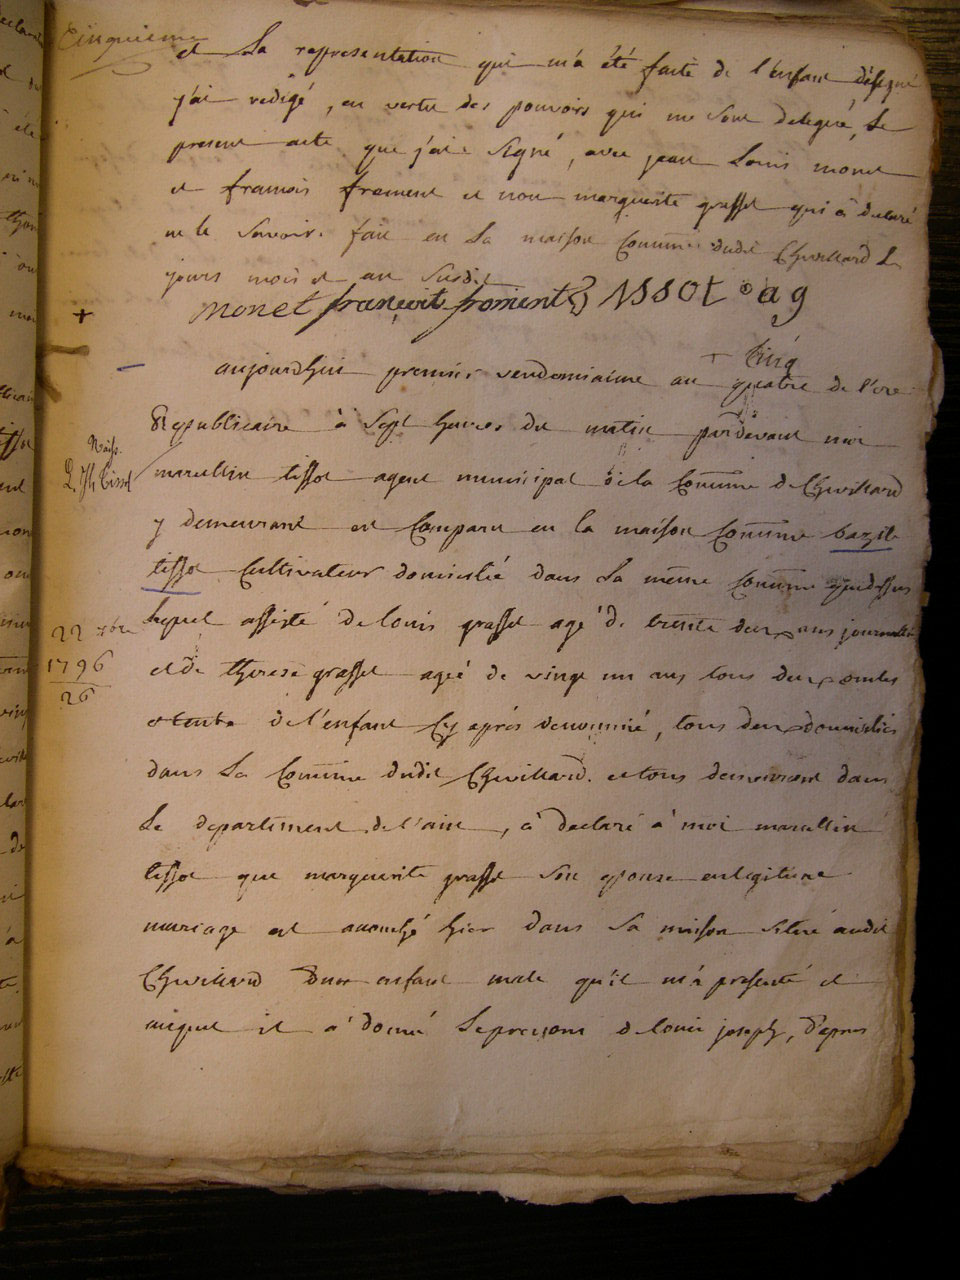 Cinquieme
et La representation qui m'a été faite de l'enfant désigné
j'ai redigé, en vertu des pouvoirs qui me sont delegué, Le
present acte que j'ai Signé, avec jean Louis monet
et framois froment et non marguerite grassot qui a declaré
ne le Savoir. fait en La maison Commune dudit Chevillard Les
jours mois et an Susdit
monet françoit froment TISSOT ag
+
+ Cinq
aujourdhui premier vendemiaire an quatre de l'ere
Republicaine à Sept heures du matin pardevant moi
Naiss.
L. Jh tissot
marcellin tissot agent municipal de la Commune de Chevillard
y demeurant est Comparu en la maison Commune bazile
tissot Cultivateur domicilié dans La même Commune
lequel assisté de louis grassot agé de trente deux ans journalier
22 7bre
1796
26
et de therese grassot ageé de vingt un ans tous deux oncles
et tente de l'enfant Cy après denommé, tous deux domiciliés
dans La Commune dudit Chevillard. et tous demeurant dans
Le departement de l'ain, a declaré à moi marcellin
tissot que marguerite grassot Son epouse en legitime
mariage est accouché hier dans Sa maison situé audit
Chevillard d'un enfant male qu'il m'a presenté et
auquel il a donné Le prenom de louis joseph, d'apres